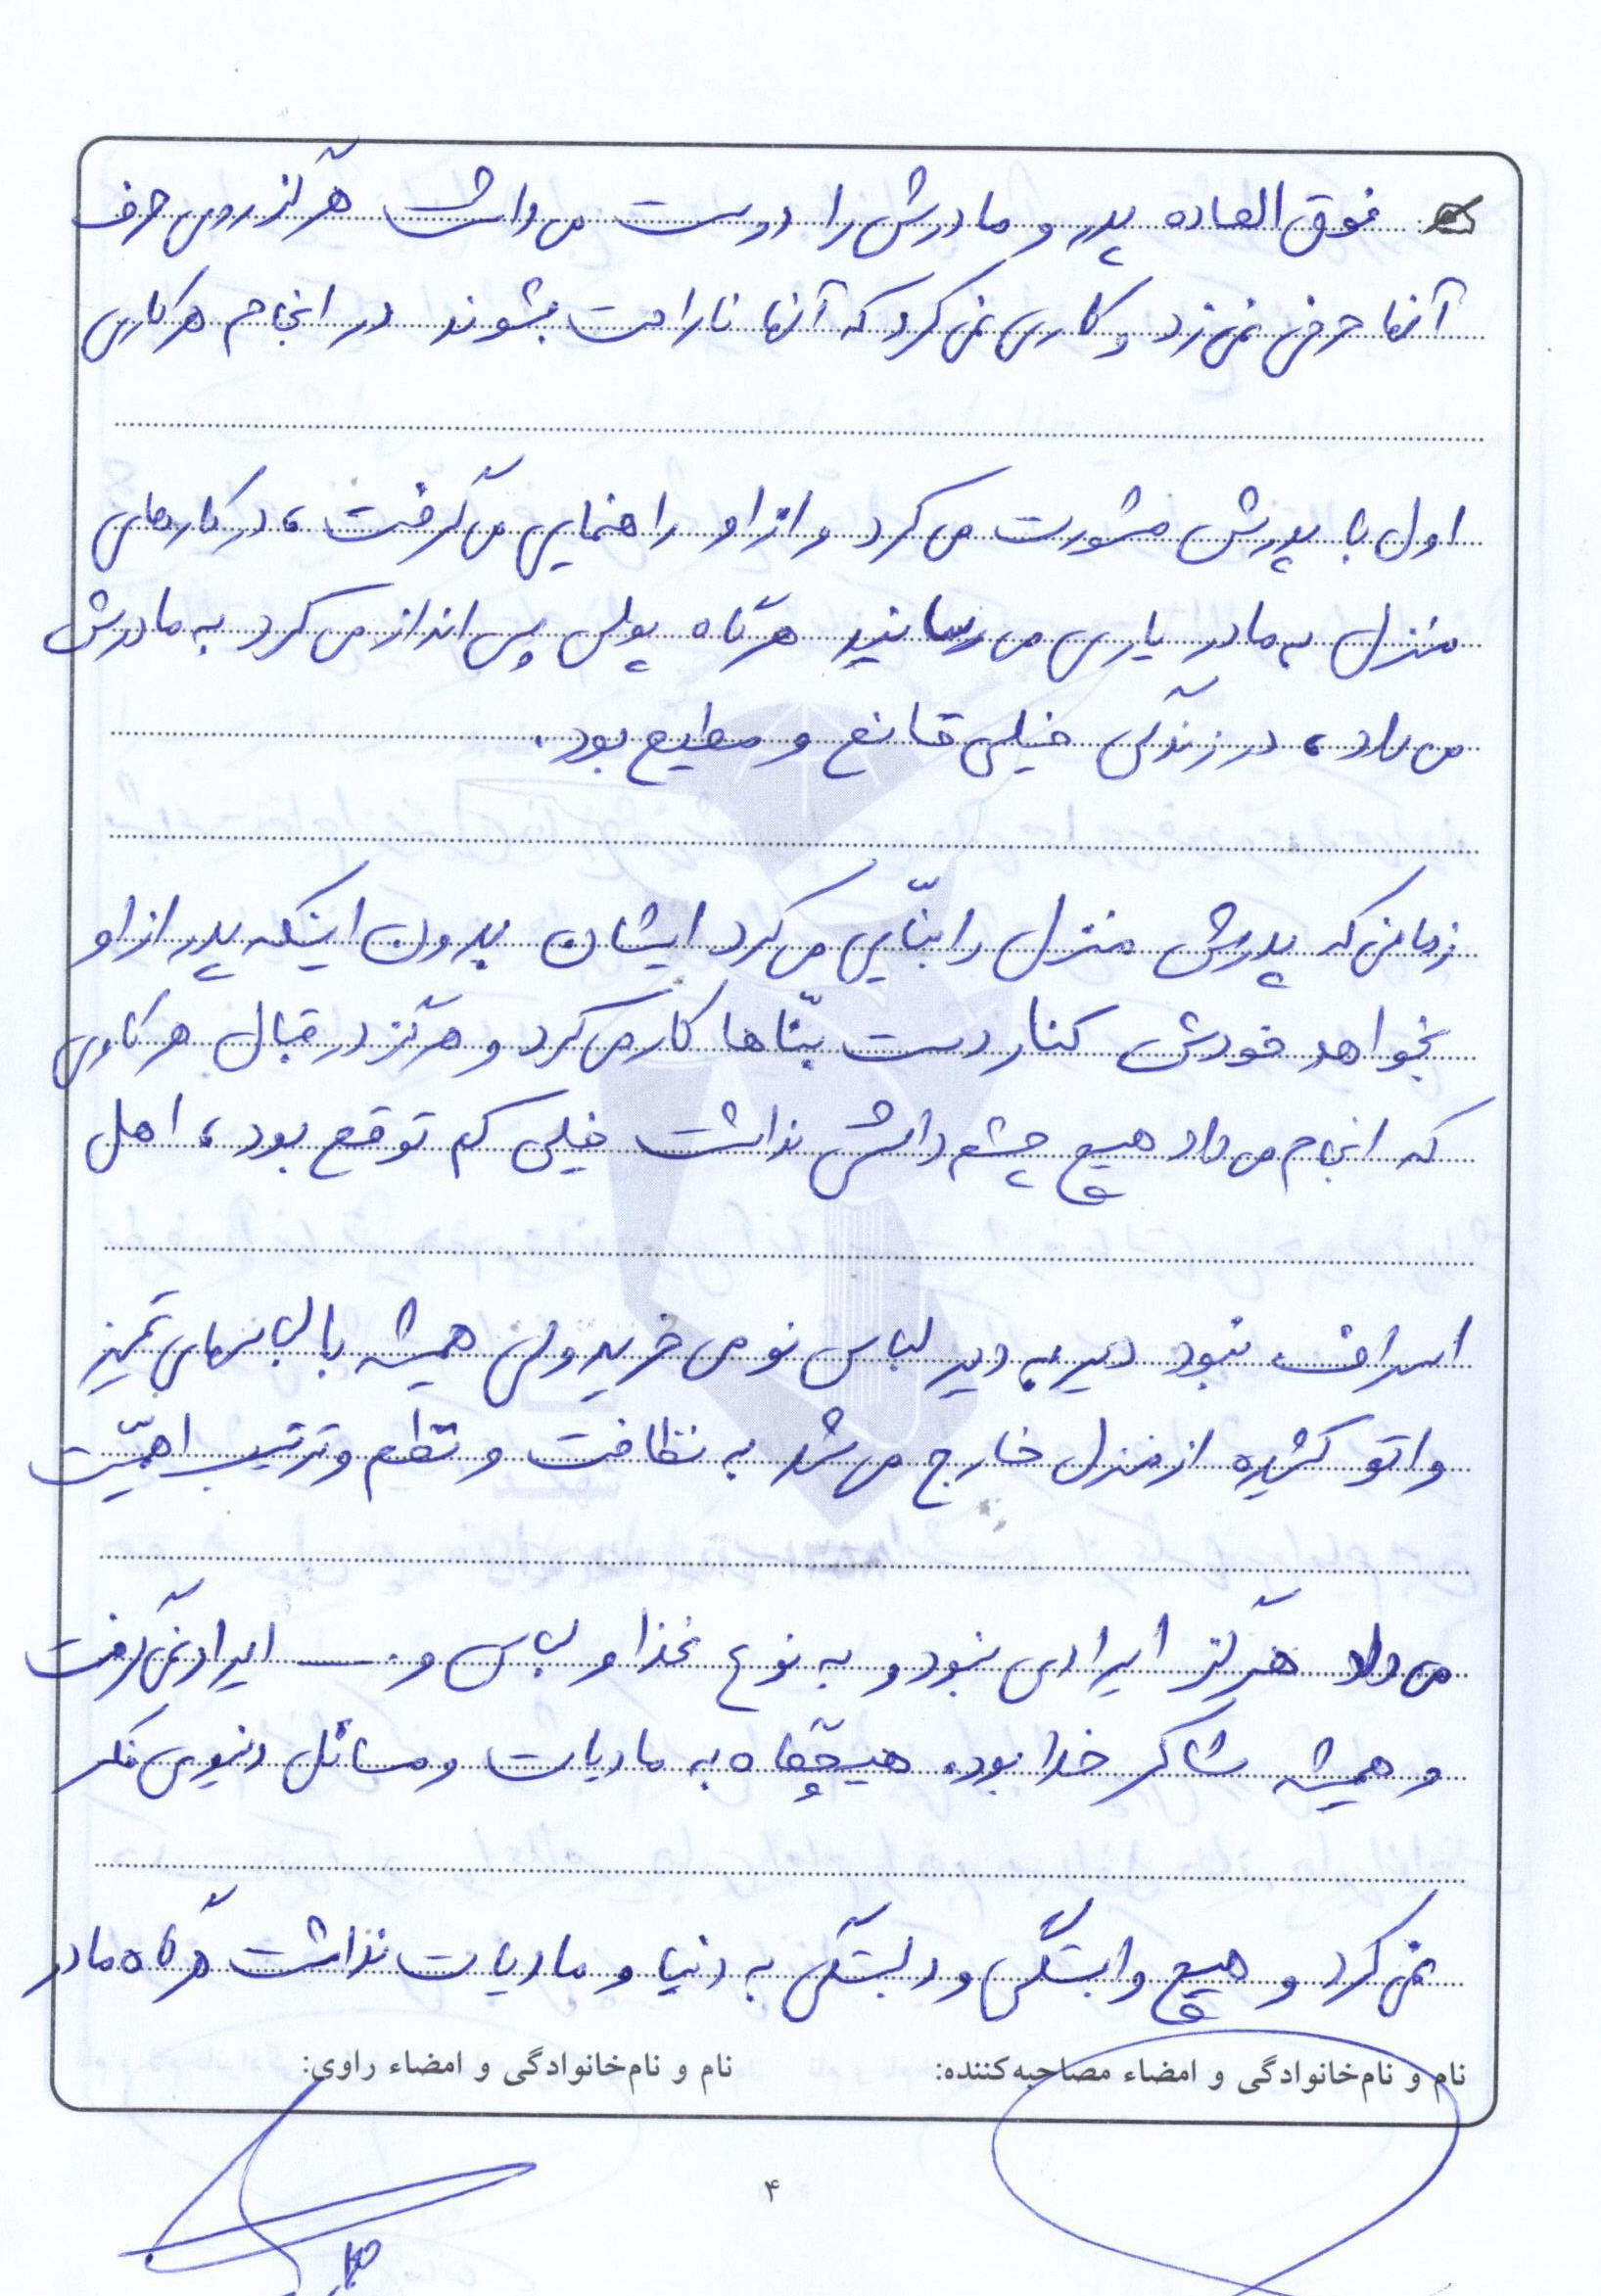 فوق العاده پدر و مادرش را دوست می داشت هرگز روی حرف
آنها حرفی نمی زد و کاری نمی کرد که آنها ناراحت بشوند در انجام هر کاری
اول با پدرش مشورت می کرد و از او راهنمایی می گرفت، در کارهای
منزل به مادر یاری می رسانید هرگاه پولی پس انداز می کرد به مادرش
می داد، در زندگی خیلی قانع و مطیع بود.
زمانی که پدرش منزل را بنّایی می کرد ایشان بدون اینکه پدر از او
بخواهد خودش کنار دست بنّاها کار می کرد و هرگز در قبال هر کاری
که انجام می داد هیچ چشم داشتی نداشت خیلی کم توقع بود، اهل
اسراف نبود دیر به دیر لباس نو می خرید ولی همیشه با لباسهای تمیز
و اتو کشیده از منزل خارج می شد به نظافت و نظم و ترتیب اهمّیت
می داد هرگز ایرادی نبود و به نوع غذا و لباس و ... ایراد نمی گرفت
و همیشه شاکر خدا بود. هیچگاه به مادیات و مسائل دنیوی فکر
نمی کرد و هیچ وابستگی و دلبستگی به دنیا و مادیات نداشت هرگاه مادر
نام و نام‌خانوادگی و امضاء مصاحبه‌کننده: نام و نام‌خانوادگی و امضاء راوی:
۴